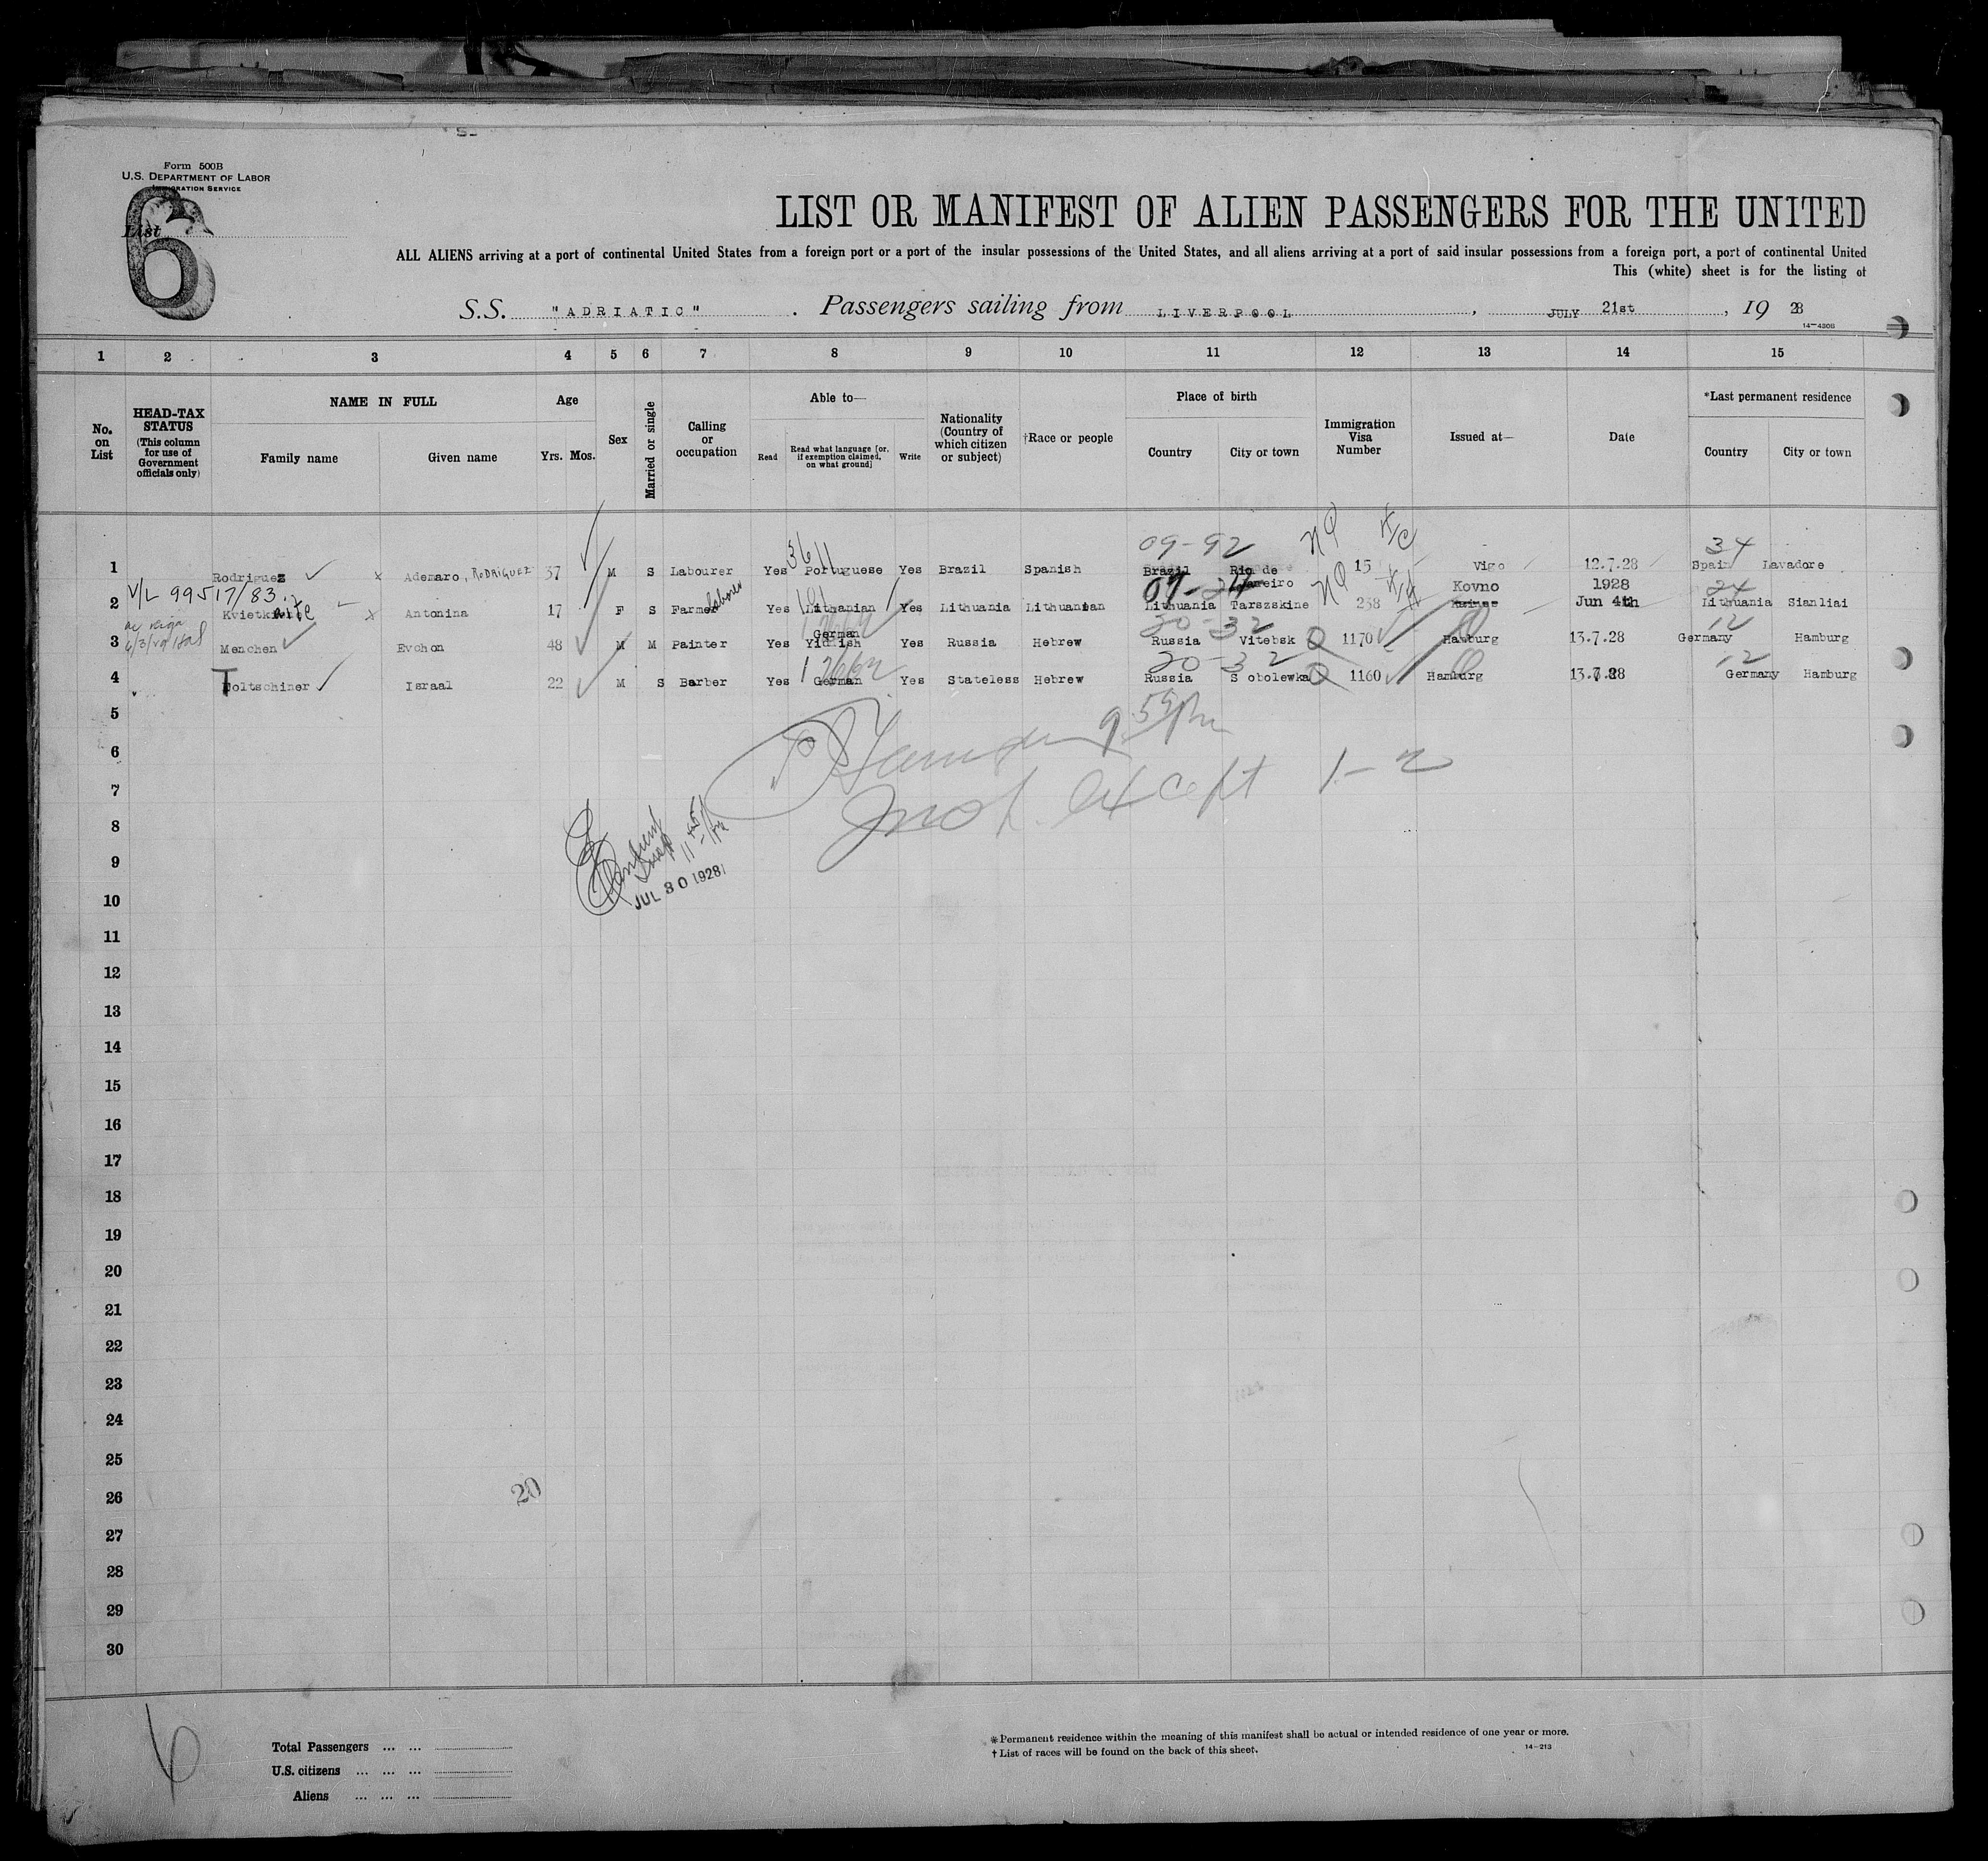 Form 500B
U.S. DEPARTMENT OF LABOR
IMMIGRATION SERVICE
List 6
LIST OR MANIFEST OF ALIEN PASSENGERS FOR THE UNITED
ALL ALIENS arriving at a port of continental United States from a foreign port or a port of the insular possessions of the United States, and all aliens arriving at a port of said insular possessions from a foreign port, a port of continental United
This (white) sheet is for the listing of
S.S. "ADRIATIC". Passengers sailing from LIVERPOOL, JULY 21st, 19 28
14-430B
1 2 3 4 5 6 7 8 9 10 11 12 13 14 15
No. on List
HEAD-TAX STATUS (This column for use of Government officials only)
NAME IN FULL
Family name Given name
Age
Yrs. Mos.
Sex
Married or single
Calling or occupation
Able to—
Read Read what language [or, if exemption claimed, on what ground] Write
Nationality (Country of which citizen or subject)
†Race or people
Place of birth
Country City or town
Immigration Visa Number
Issued at—
Date
*Last permanent residence
Country City or town
3611 09-92 NQ 34
1 Rodriguez Ademaro, RODRIGUEZ 37 M S Labourer Yes Portuguese Yes Brazil Spanish Brazil Rio de Janeiro 15 Vigo 12.7.28 Spain Lavadore
V/L 99517/83. NQ Kovno 1928 24
2 Kvietkaite Antonina 17 F S Farmer laborer Yes Lithanian Yes Lithuania Lithuanian Lithuania Tarszskine 258 Jun 4th Lithuania Sianliai
20-32 12
3 Menchen Evohon 48 M M Painter Yes German Yiddish Yes Russia Hebrew Russia Vitebsk 1170 Hamburg 13.7.28 Germany Hamburg
20-32 12
4 Toltschiner Israal 22 M S Barber Yes German Yes Stateless Hebrew Russia Sobolewka 1160 Hamburg 13.7.28 Germany Hamburg
5
6
7
except 1-2
8
9
JUL 30 1928
10
11
12
13
14
15
16
17
18
19
20
21
22
23
24
25
26
20
27
28
29
30
6
Total Passengers ... ...
U.S. citizens ... ... ...
Aliens ... ... ...
* Permanent residence within the meaning of this manifest shall be actual or intended residence of one year or more.
† List of races will be found on the back of this sheet.
14-213